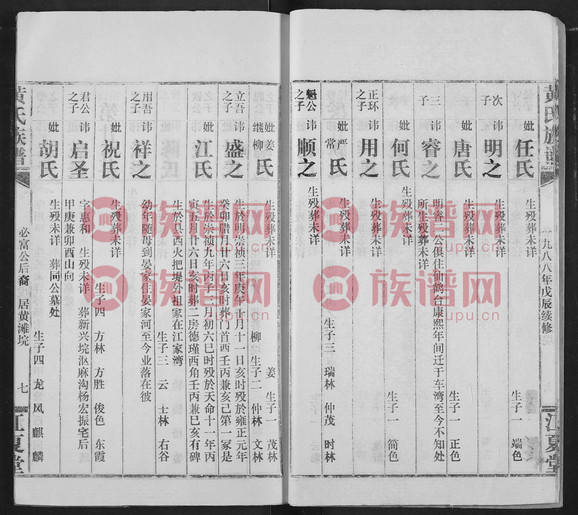 黄氏族谱
一九八八年戊辰续修
江夏堂
妣任氏 生殁葬未详 生子一 端色
次子 讳明之
妣唐氏 生殁葬未详 生子一 正色
三子 讳睿之 明睿二公俱住仙鹤台康熙年间迁于车湾至今不知处
所生殁葬未详
妣何氏 生殁葬未详 生子一 简色
正环之子 讳用之
妣严常氏 生殁葬未详 生子三 瑞林 仲茂 时林
魁公之子 讳顺之 生殁葬未详
妣姜继柳氏 生殁葬未详 姜 生子一 茂林
柳 生子二 仲林 文林
立吾之子 讳盛之 生於明崇祯三年庚午十月十一日亥时殁於雍正元年
癸卯腊月廿六日亥时葬门首酉壬丙兼亥己第一冢是
妣江氏 生於崇祯九年丙子二月初六巳时殁於天命十一年丙
寅五月廿八日亥时葬二房德瑾西角壬丙兼巳亥有碑
生於县西火把堤外祖家在江家湾
生子三 云 士林 右谷
用吾之子 讳祥之 幼年随母到晏家住晏家河至今业落在彼
妣祝氏 生殁葬未详 生子四 方林 方胜 俊色 东霞
君公之子 讳启圣 字惠和 生殁未详 葬新兴垸沤麻沟杨宏振宅后
甲庚兼卯酉山向
妣胡氏 生殁未详 葬同公墓处
生子四 龙 凤 麒 麟
黄氏族谱
必富公后裔 居黄滩垸
七
江夏堂
族谱网
zupu.cn
族谱网
zupu.cn
族谱网
zupu.cn
族谱网
zupu.cn